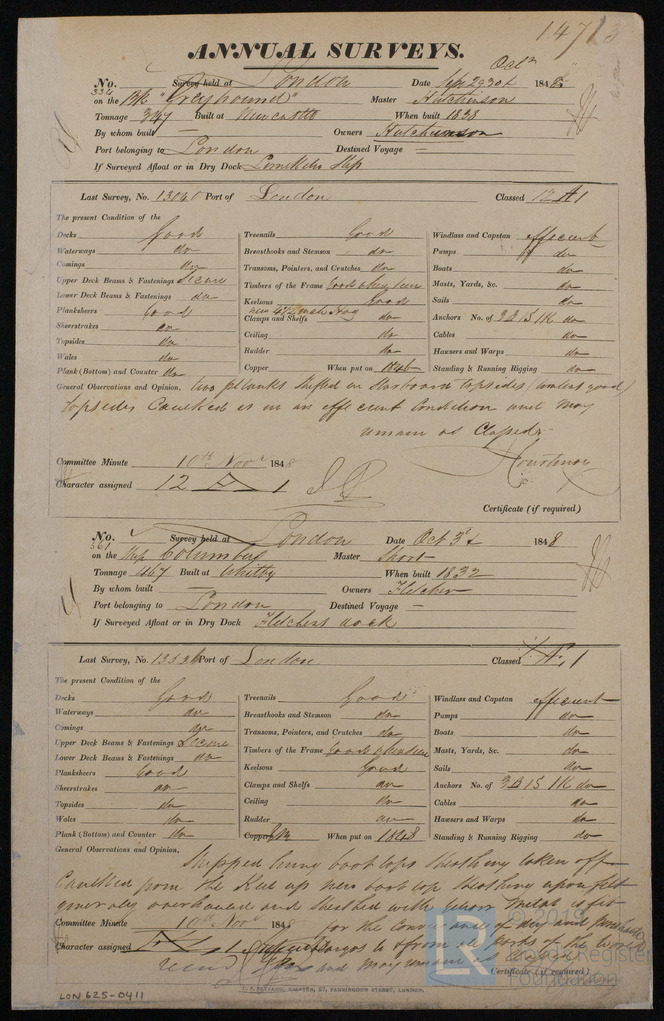 14713
ANNUAL SURVEYS.
Oct
No. 334 Survey held at London Date Sep 29 Oct 1848
on the Bk "Greyhound" Master Hutchinson
Tonnage 347 Built at Newcastle When built 1838
By whom built — Owners Hutchinson
Port belonging to London Destined Voyage —
If Surveyed Afloat or in Dry Dock Limekiln Slip
Last Survey, No. 13040 Port of London Classed 12 A 1
The present Condition of the
Decks Good
Waterways do
Comings do
Upper Deck Beams & Fastenings Secure
Lower Deck Beams & Fastenings do
Planksheers Good
Sheerstrakes do
Topsides do
Wales do
Plank (Bottom) and Counter do
Treenails Good
Breasthooks and Stemson do
Transoms, Pointers, and Crutches do
Timbers of the Frame Good where seen
Keelsons Good
Clamps and Shelfs do
Ceiling do
Rudder do
Copper When put on 1846
Windlass and Capstan efficient
Pumps do
Boats do
Masts, Yards, &c. do
Sails do
Anchors No. of 3B 1S 1K do
Cables do
Hawsers and Warps do
Standing & Running Rigging do
General Observations and Opinion, two planks shifted in Starboard topsides (timbers good)
topsides Caulked is in an efficient Condition and may
remain as Classed
Courtenay
Committee Minute 10th Novr 1848
Character assigned 12 A 1
Certificate (if required)
No. 561 Survey held at London Date Oct 3d 1848
on the Ship Columbus Master Short
Tonnage 467 Built at Whitby When built 1832
By whom built — Owners Fletcher
Port belonging to London Destined Voyage —
If Surveyed Afloat or in Dry Dock Fletchers dock
Last Survey, No. Port of London Classed Æ 1
The present Condition of the
Decks Good
Waterways do
Comings do
Upper Deck Beams & Fastenings Secure
Lower Deck Beams & Fastenings do
Planksheers Good
Sheerstrakes do
Topsides do
Wales do
Plank (Bottom) and Counter do
Treenails Good
Breasthooks and Stemson do
Transoms, Pointers, and Crutches do
Timbers of the Frame Good where seen
Keelsons Good
Clamps and Shelfs do
Ceiling do
Rudder do
Copper YM When put on 1848
Windlass and Capstan efficient
Pumps do
Boats do
Masts, Yards, &c. do
Sails do
Anchors No. of 3B 1S 1K do
Cables do
Hawsers and Warps do
Standing & Running Rigging do
General Observations and Opinion, Stripped hung boot tops Sheathing taken off
Caulked from the Keel up new boot top Sheathing upon felt
generally overhauled and Sheathed with yellow Metal is fit
Committee Minute 10th Novr 1848 for the Conveyance of dry and perishable
Character assigned Cargos to & from all ports of the World
and may remain as
Certificate (if required)
CHARTER, 27, FARRINGDON STREET, LONDON.
LON 625-0411
© 2019
LR
Lloyd's Register
Foundation